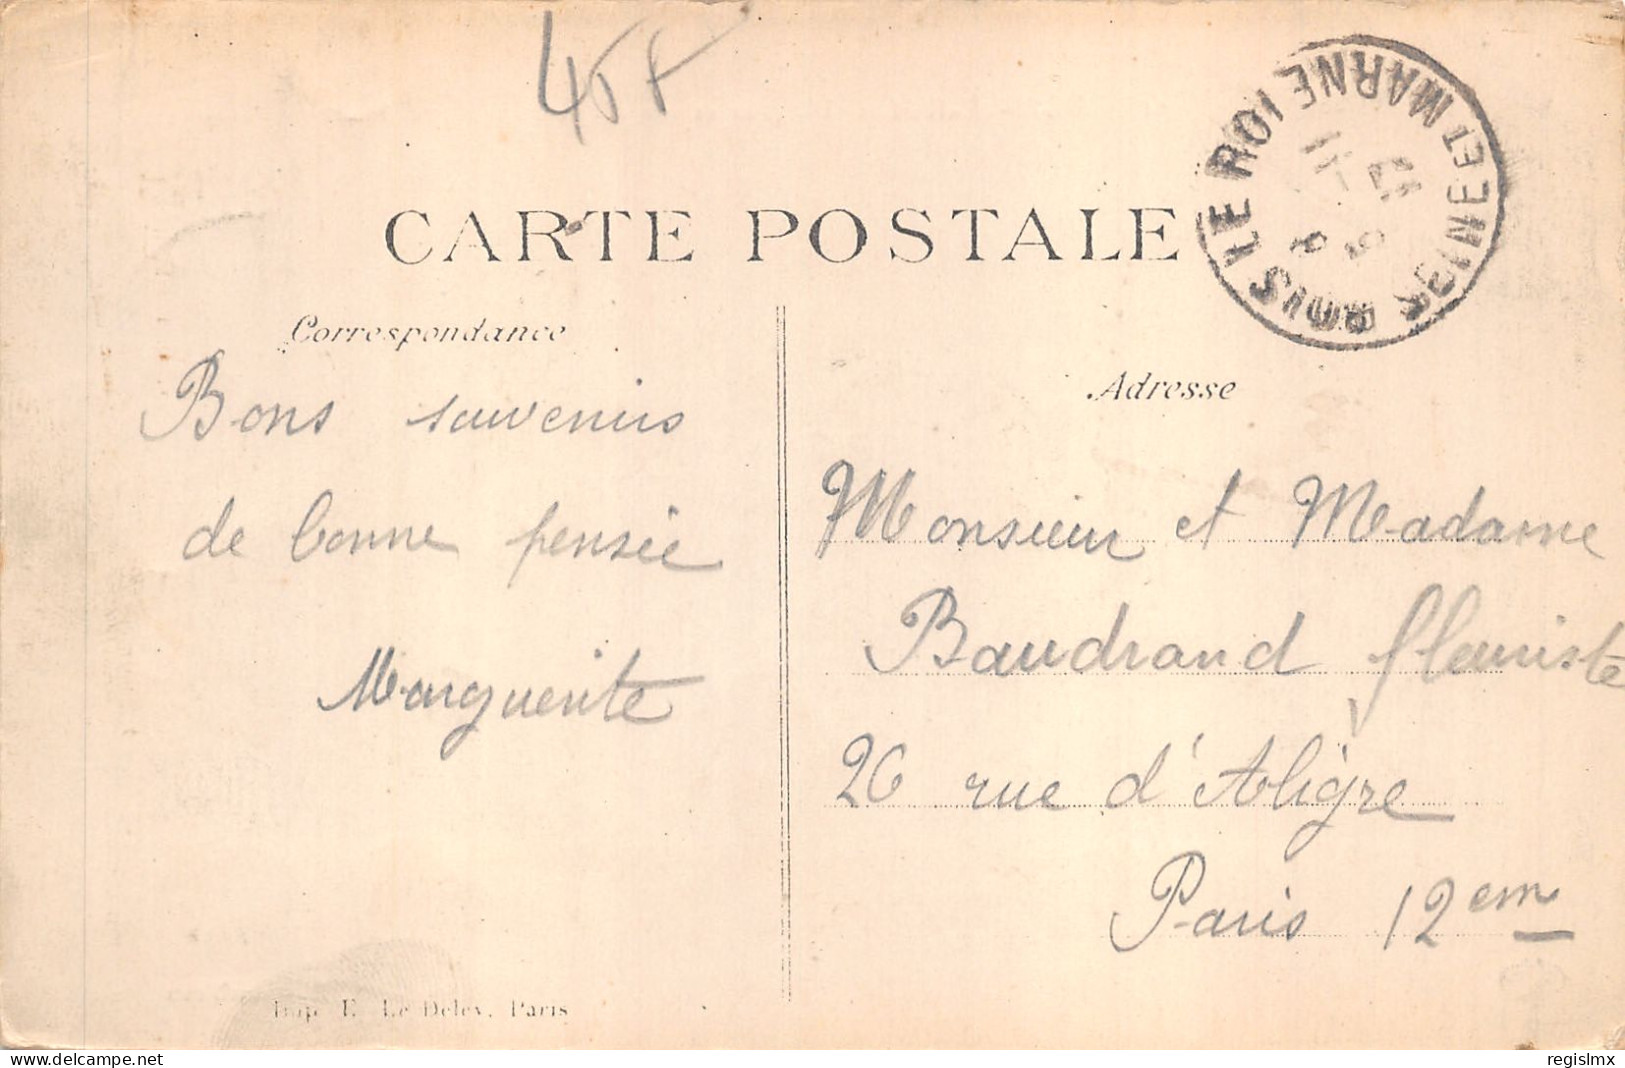 45F
CARTE POSTALE
BOIS LE ROI SEINE ET MARNE
Correspondance
Adresse
Bons souvenirs
de bonne pensée
Marguerite
Monsieur et Madame
Baudrand fleuriste
26 rue d'Aligre
Paris 12em
Imp. E. Le Deley, Paris
delcampe.net
regislmx